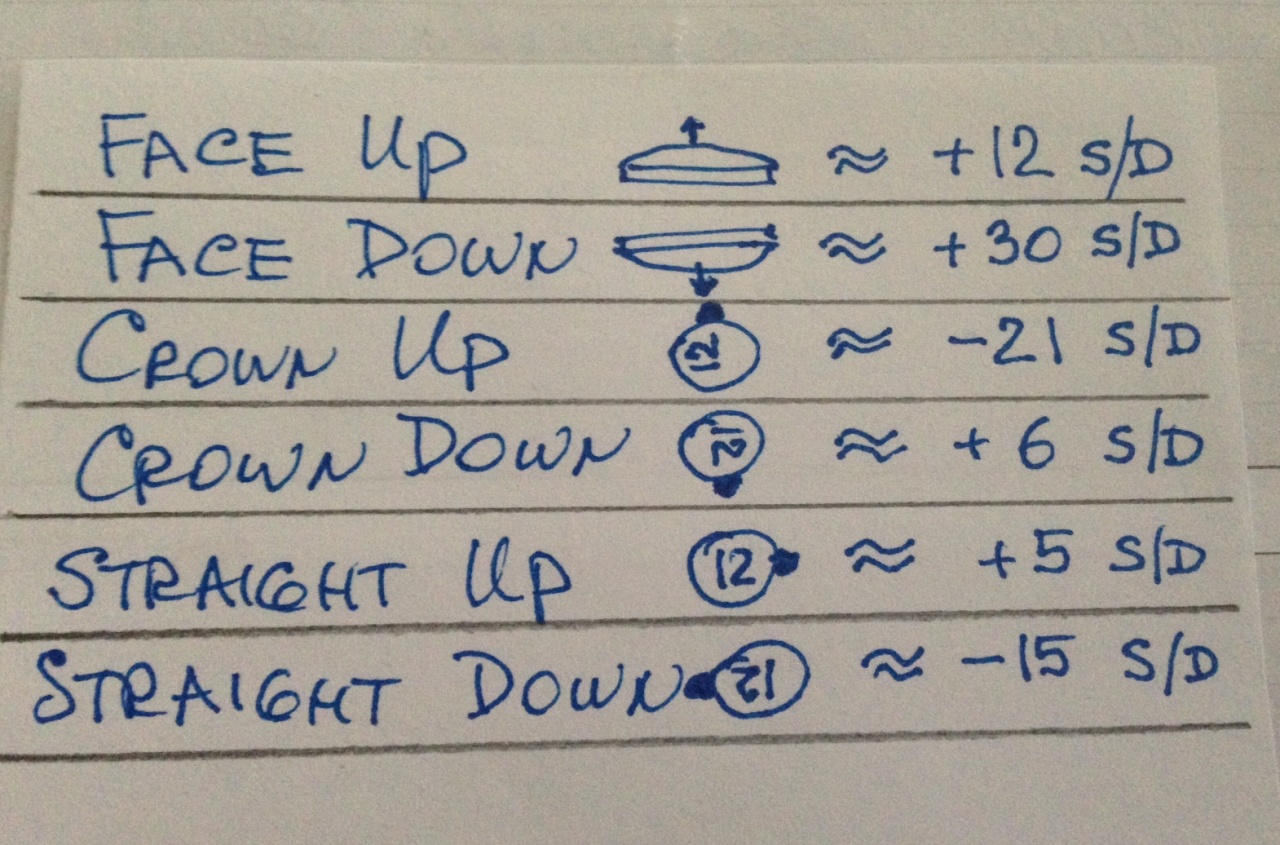 FACE Up ≈ +12 S/D
FACE DOWN ≈ +30 S/D
CROWN Up 12 ≈ -21 S/D
CROWN DOWN 12 ≈ +6 S/D
STRAIGHT Up 12 ≈ +5 S/D
STRAIGHT DOWN 12 ≈ -15 S/D